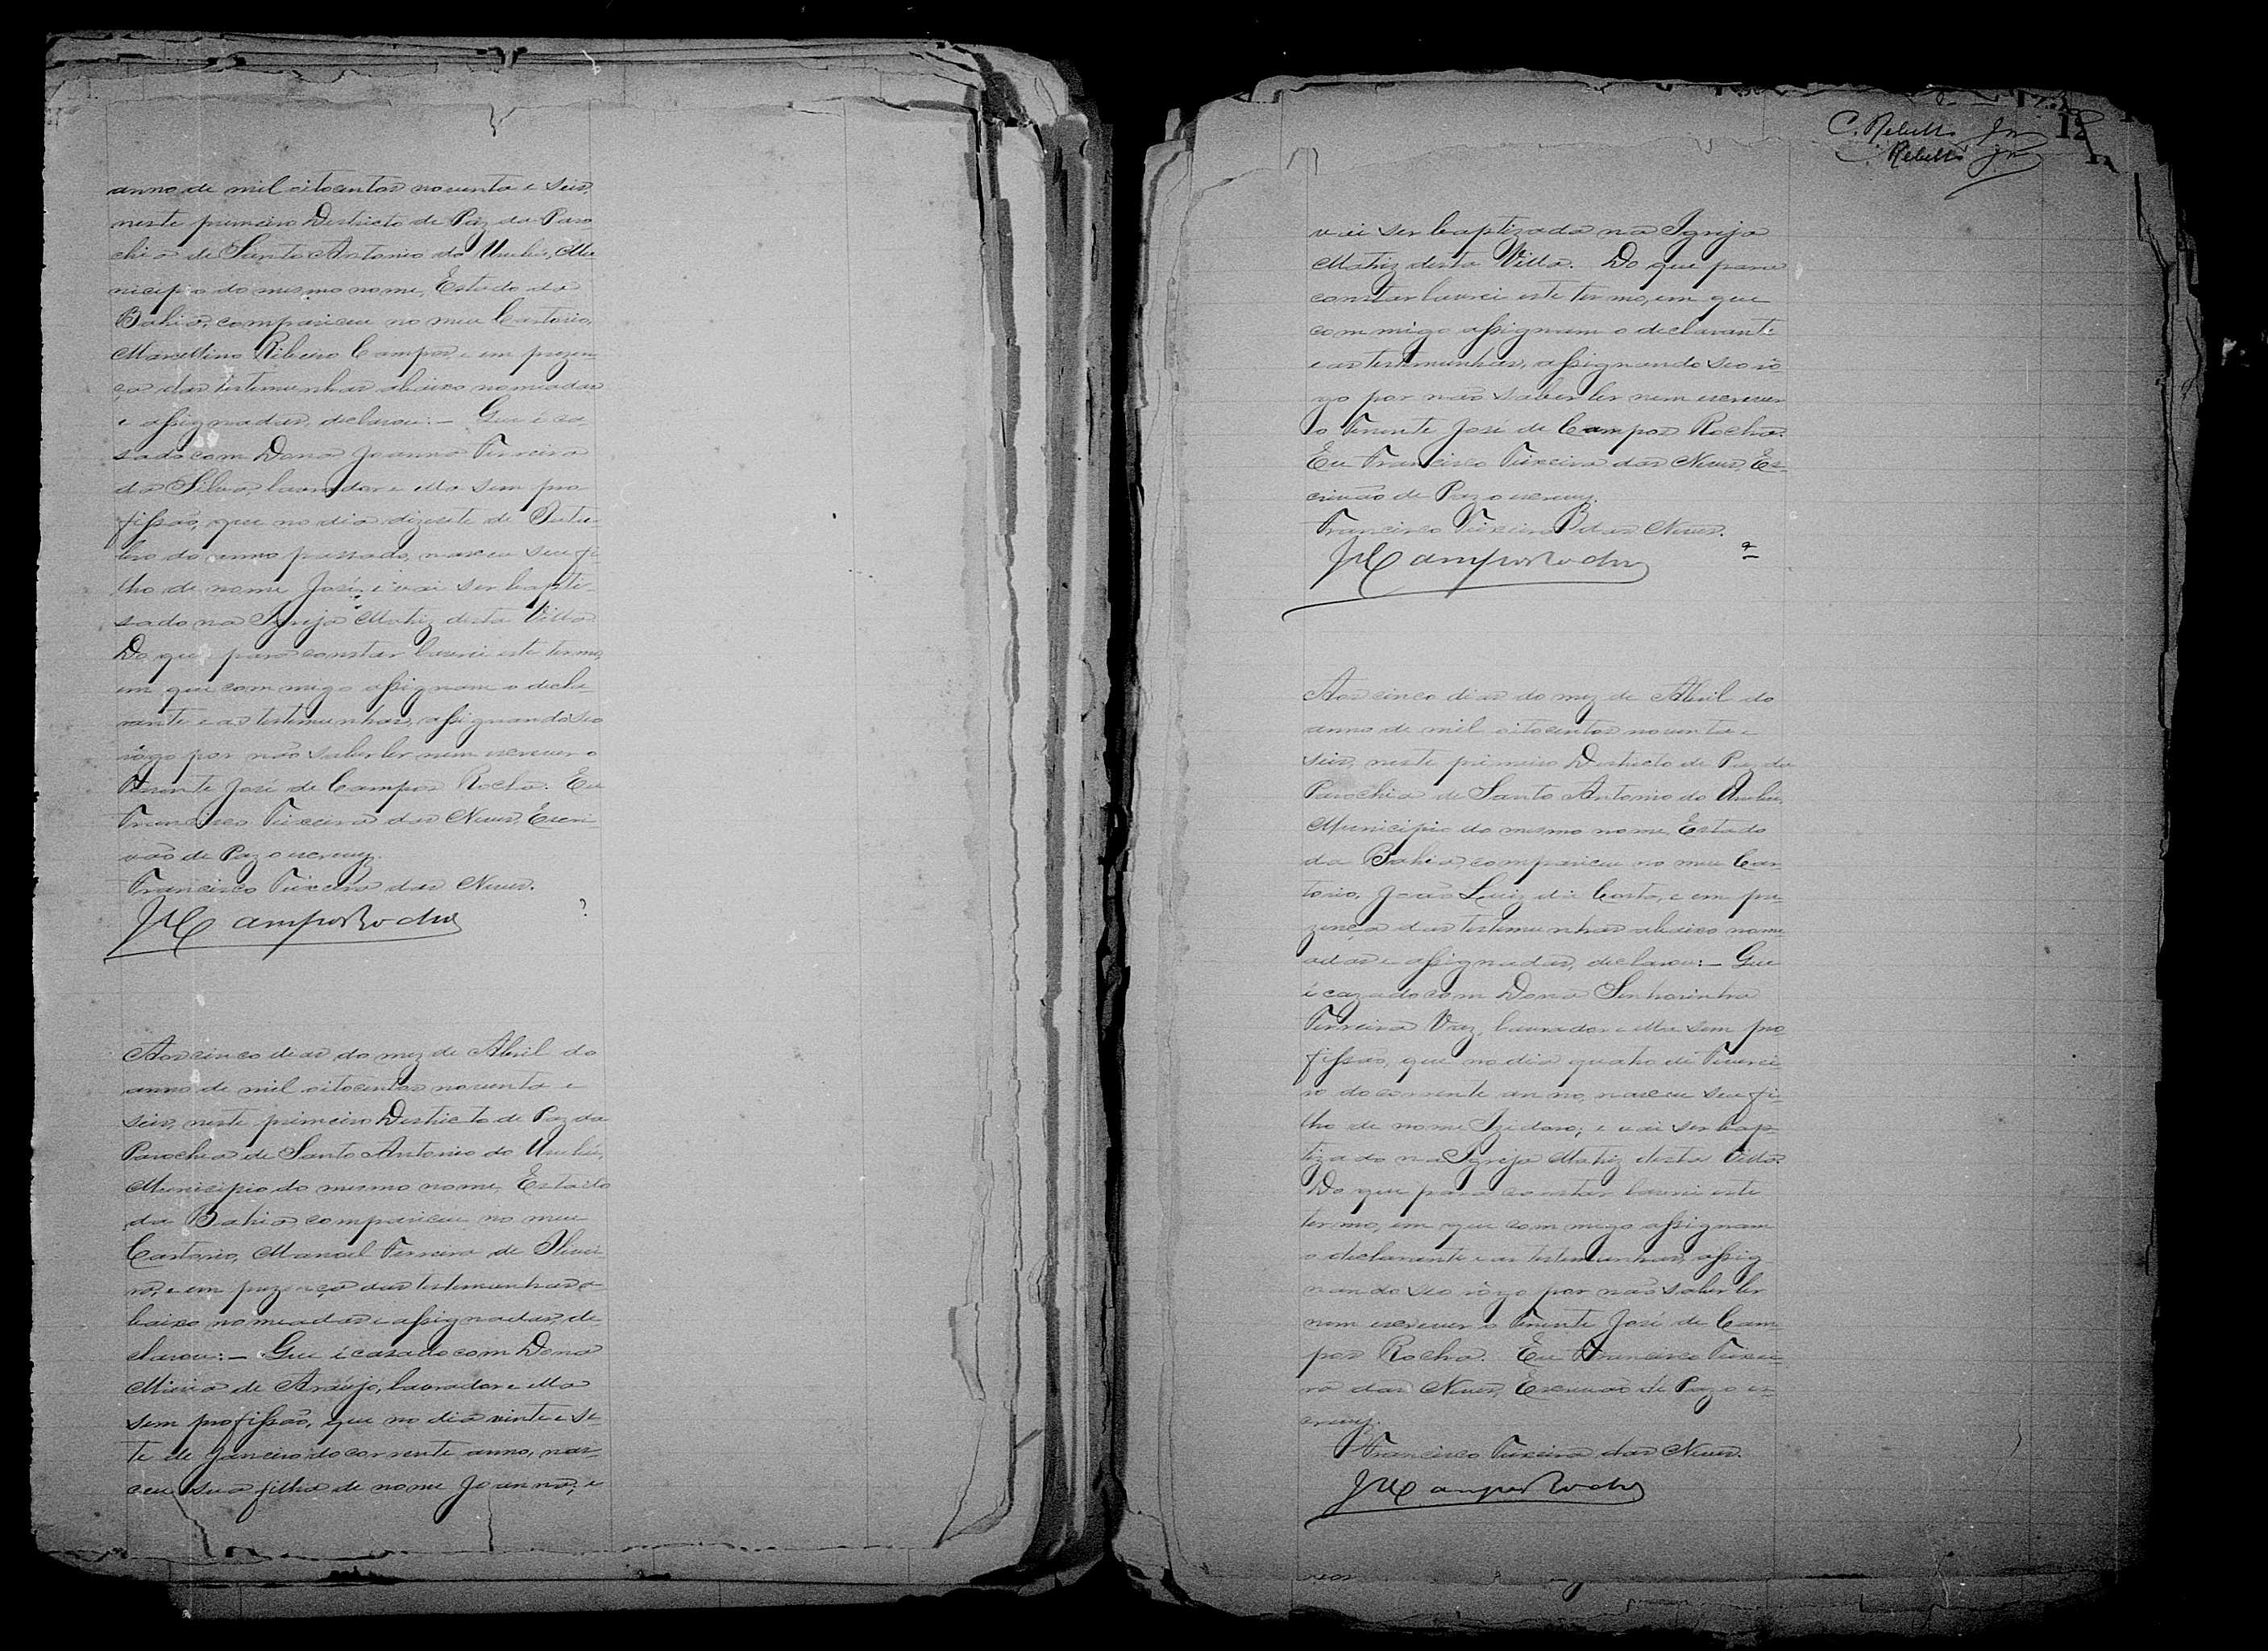 anno de mil oitocentos noventa e seis,
neste primeiro Districto de Paz da Paro
chia de Santo Antonio do Urubú, Mu
nicipio do mesmo nome, Estado da
Bahia, compareceu no meu Cartorio,
Marcellino Ribeiro Campos, e em prezen
ça das testemunhas abaixo nomeadas
e assignadas, declarou:- Que é ca
sado com Dona Joanna Ferreira
da Silva, lavrador e ella sem pro
fissão, que no dia dizesete de Outu-
bro do anno passado, nasceu seu fi
lho de nome José; e vai ser bapti-
sado na Igreja Matriz desta Villa.
Do que para constar lavrei este termo,
em que commigo assignam o decla
rante e as testemunhas, assignando seo
rôgo por não saber ler nem escrever o
Tenente José de Campos Rocha. Eu
Francisco Teixeira das Neves, Escri-
vão de Paz o escrevy.
Francisco Teixeira das Neves.
JCamposRocha
Aos cinco dias do mez de Abril do
anno de mil oitocentos noventa e
seis, neste primeiro Districto de Paz da
Parochia de Santo Antonio do Urubú,
Municipio do mesmo nome, Estado
da Bahia compareceu no meu
Cartorio, Manoel Ferreira de Olivei-
ra, e em prezença das testemunhas a-
baixo nomeadas e assignadas, de
clarou:- Que é casado com Dona
Maria de Araujo, lavrador e ella
sem profissão, que no dia vinte e se
te de Janeiro do corrente anno, nas-
ceu sua filha de nome Joanna; e
C. Rebello Jr
12
C. Rebello Jr
vai ser baptizada na Igreja
Matriz desta Villa. Do que para
constar lavrei este termo, em que
commigo assignam o declarante
e as testemunhas, assignando seo rô
go por não saber ler nem escrever
o Tenente José de Campos Rocha.
Eu Francisco Teixeira das Neves, Es-
crivão de Paz o escrevy.
Francisco Teixeira das Neves.
JCamposRocha
Aos cinco dias do mez de Abril do
anno de mil oitocentos noventa e
seis, neste primeiro Districto de Paz da
Parochia de Santo Antonio do Urubú,
Municipio do mesmo nome, Estado
da Bahia, compareceu no meu Car-
torio, João Luiz da Costa, e em pre-
zença das testemunhas abaixo nome
adas e assignadas, declarou:- Que
é cazado com Dona Senhorinha
Ferreira Vaz, lavrador e ella sem pro
fissão, que no dia quatro de Feverei-
ro do corrente anno, nasceu seu fi-
lho de nome Izidoro; e vai ser bap-
tizado na Igreja Matriz desta Villa.
Do que para constar lavrei este
termo, em que commigo assignam
o declarante e as testemunhas, assig
nando seo rôgo por não saber ler
nem escrever o Tenente José de Cam
pos Rocha. Eu Francisco Teixei-
ra das Neves, Escrivão de Paz o es-
crevy.
Francisco Teixeira das Neves.
JCamposRocha